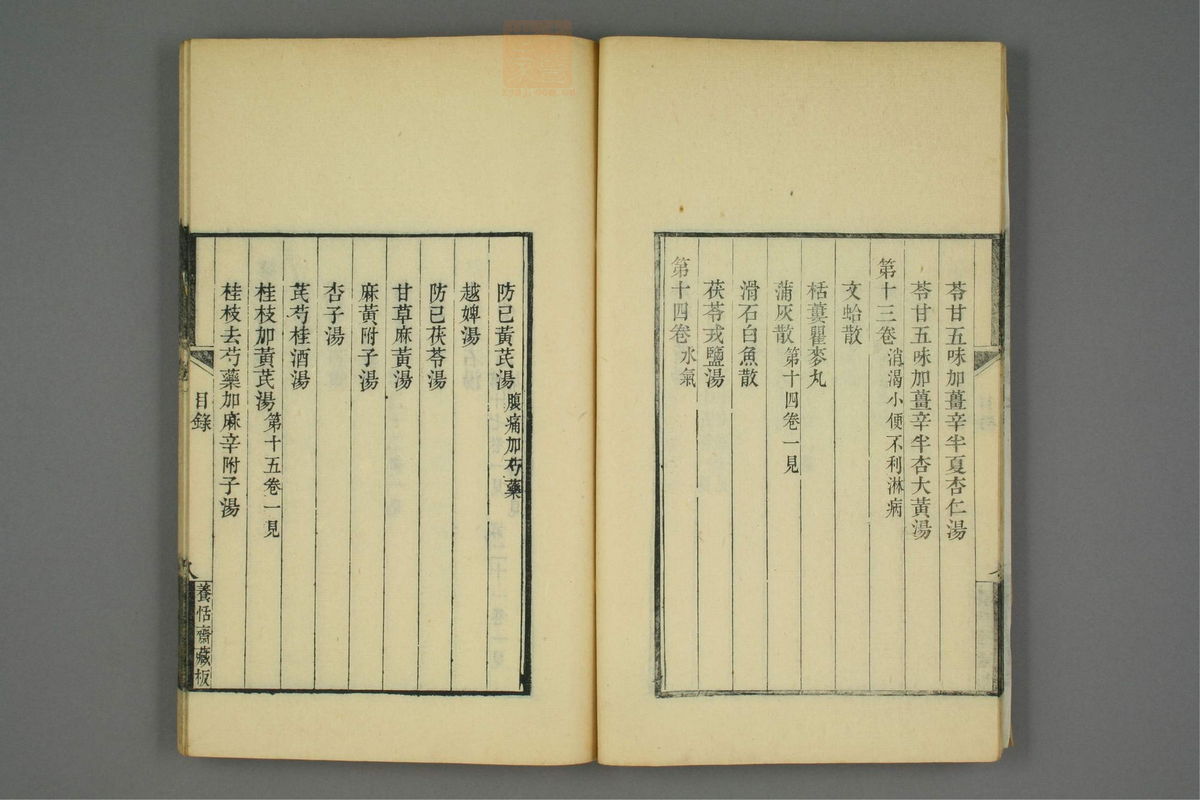 苓甘五味加薑辛半夏杏仁湯
苓甘五味加薑辛半杏大黃湯
第十三卷 消渴小便不利淋病
文蛤散
栝蔞瞿麥丸
蒲灰散 第十四卷一見
滑石白魚散
茯苓戎鹽湯
第十四卷 水氣
防已黃芪湯 腹痛加芍藥
越婢湯
防已茯苓湯
甘草麻黃湯
麻黃附子湯
杏子湯
芪芍桂酒湯
桂枝加黃芪湯 第十五卷一見
桂枝去芍藥加麻辛附子湯
目錄
八
養恬齋藏板